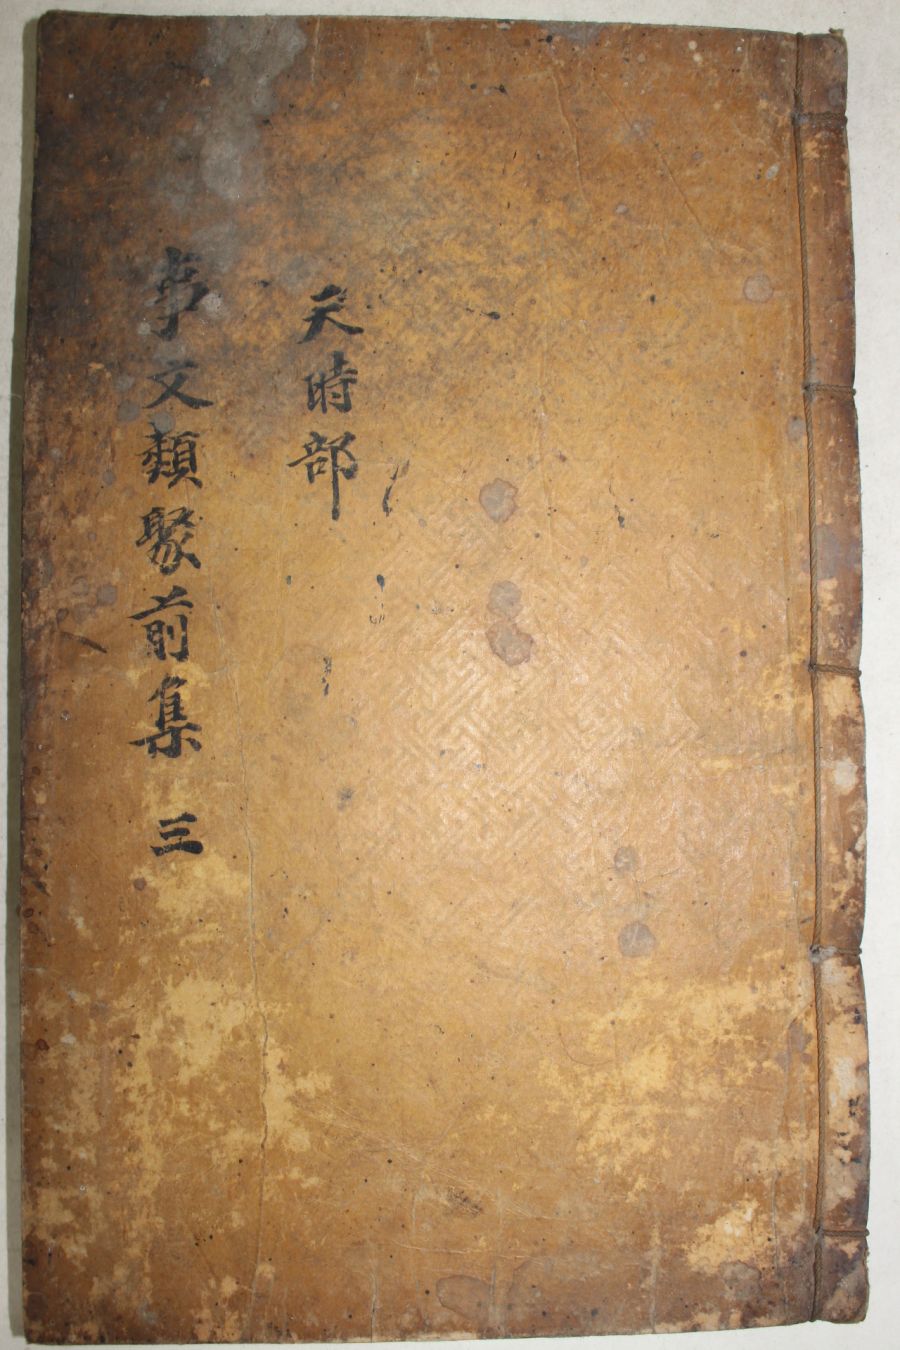 天時部
事文類聚前集 三